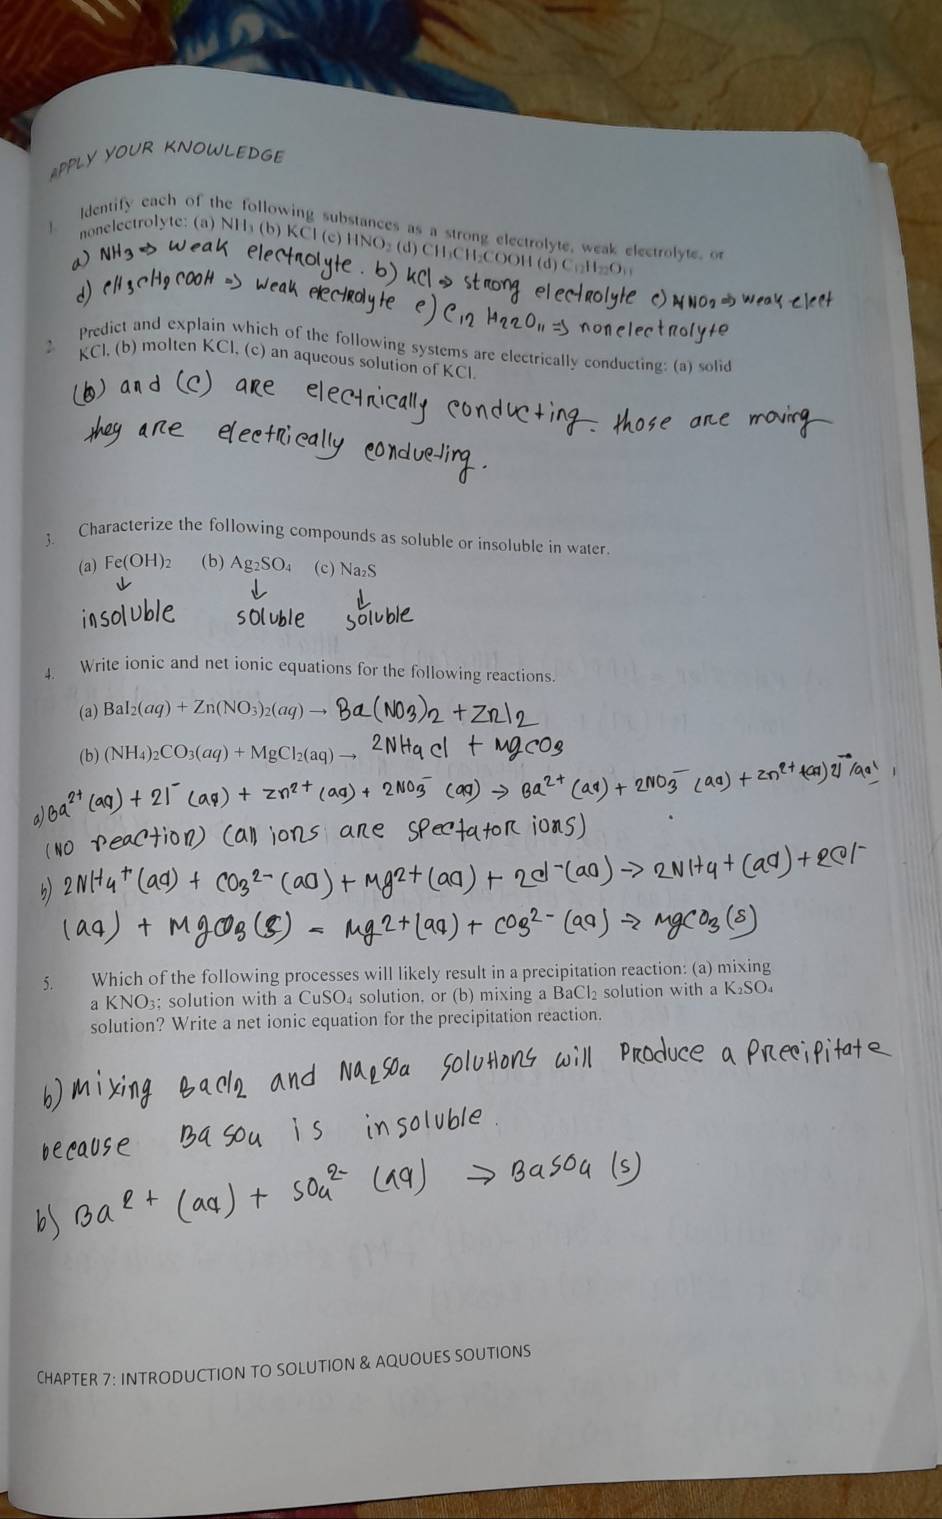 APPLY YOUR KNOWLEDGE
1. Identify each of the following substances as a strong electrolyte, weak electrolyte, or
nonelectrolyte: (a) NH₃ (b) KCl (c) HNO₂ (d) CH₃CH₂COOH (d) C₁₂H₂₂O₁₁
a) NH3 ⇒ weak electrolyte. b) KCl ⇒ strong electrolyte c) HNO2 ⇒ weak elect
d) CH3CH2COOH ⇒ weak electrolyte e) C12 H22O11 ⇒ nonelectrolyte
2. Predict and explain which of the following systems are electrically conducting: (a) solid
KCl, (b) molten KCl, (c) an aqueous solution of KCl.
(b) and (c) are electrically conducting. those are moving
they are electrically conducting.
3. Characterize the following compounds as soluble or insoluble in water.
(a) Fe(OH)₂ (b) Ag₂SO₄ (c) Na₂S
↓ ↓ ↓
insoluble soluble soluble
4. Write ionic and net ionic equations for the following reactions.
(a) BaI₂(aq) + Zn(NO₃)₂(aq) → Ba(NO3)2 + ZnI2
(b) (NH₄)₂CO₃(aq) + MgCl₂(aq) → 2NH4cl + MgCO3
a) Ba²⁺ (aq) + 2I⁻ (aq) + Zn²⁺ (aq) + 2NO3⁻ (aq) → Ba²⁺ (aq) + 2NO3⁻ (aq) + Zn²⁺ + (aq) 2I⁻ (aq)
(NO reaction) (all ions are spectator ions)
b) 2NH4⁺ (aq) + CO3²⁻ (aq) + Mg²⁺ (aq) + 2cl⁻ (aq) → 2NH4+ (aq) + 2Cl⁻
(aq) + MgCO3 (s) = Mg2+ (aq) + CO3²⁻ (aq) ⇒ MgCO3 (s)
5. Which of the following processes will likely result in a precipitation reaction: (a) mixing
a KNO₃; solution with a CuSO₄ solution, or (b) mixing a BaCl₂ solution with a K₂SO₄
solution? Write a net ionic equation for the precipitation reaction.
b) Mixing Bacl2 and Na2SO4 solutions will Produce a Precipitate
because BaSO4 is insoluble.
b) Ba²⁺ (aq) + SO4²⁻ (aq) → BaSO4 (s)
CHAPTER 7: INTRODUCTION TO SOLUTION & AQUOUES SOUTIONS